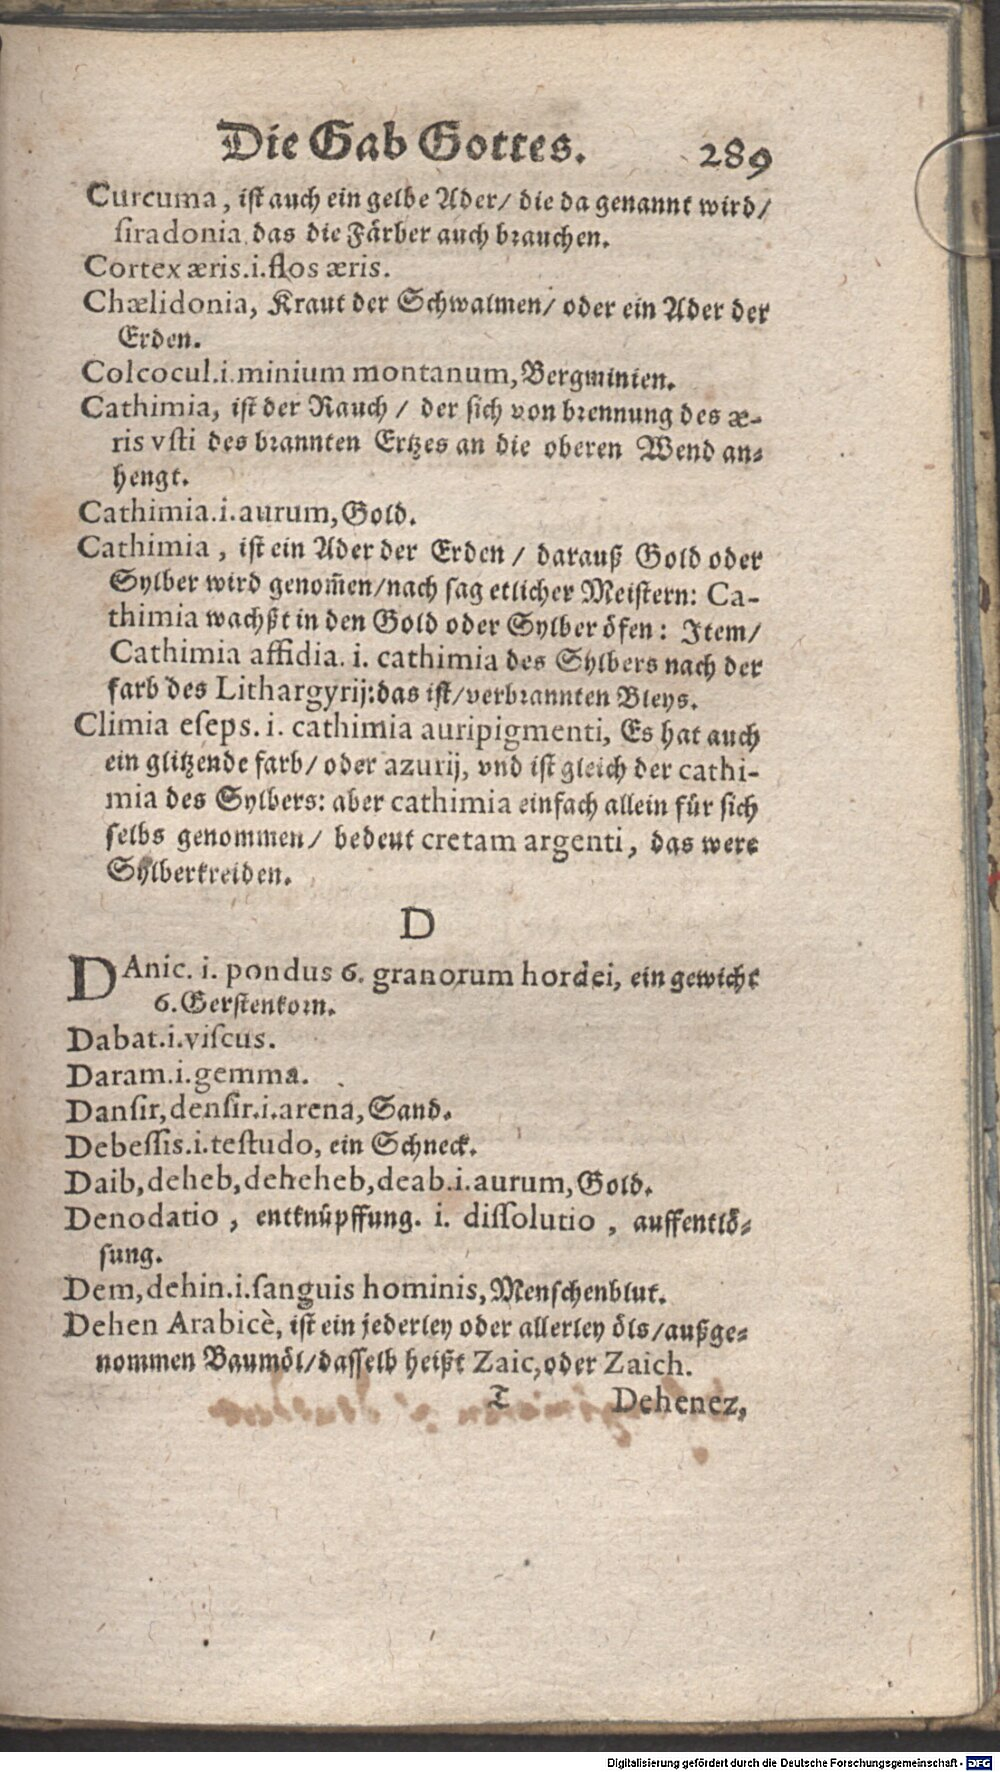 Die Gab Gottes. 289
Curcuma, iſt auch ein gelbe Ader/ die da genannt wird/
ſiradonia das die Färber auch brauchen.
Cortex æris.i.flos æris.
Chælidonia, Kraut der Schwalmen/ oder ein Ader der
Erden.
Colcocul.i.minium montanum, Bergminien.
Cathimia, iſt der Rauch / der ſich von brennung des æ-
ris vſti des brannten Ertzes an die oberen Wend an-
hengt.
Cathimia.i.aurum, Gold.
Cathimia, iſt ein Ader der Erden / darauß Gold oder
Sylber wird genom̃en/nach ſag etlicher Meiſtern: Ca-
thimia wachßt in den Gold oder Sylber öfen: Item/
Cathimia affidia. i. cathimia des Sylbers nach der
farb des Lithargyrij: das iſt/verbrannten Bleys.
Climia eſeps. i. cathimia auripigmenti, Es hat auch
ein glitzende farb/ oder azurij, vnd iſt gleich der cathi-
mia des Sylbers: aber cathimia einfach allein für ſich
ſelbs genommen/ bedeut cretam argenti, das were
Sylberkreiden.
D
DAnic. i. pondus 6. granorum hordei, ein gewicht
6. Gerſtenkorn.
Dabat.i.viſcus.
Daram.i.gemma.
Danſir, denſir.i.arena, Sand.
Debeſſis.i.teſtudo, ein Schneck.
Daib, deheb, deheheb, deab.i.aurum, Gold.
Denodatio, entknüpffung. i. diſſolutio, auffentlö-
ſung.
Dem, dehin.i.ſanguis hominis, Menſchenblut.
Dehen Arabicè, iſt ein jederley oder allerley öls/außge-
nommen Baumöl/daſſelb heißt Zaic, oder Zaich.
T Dehenez,
Digitalisierung gefördert durch die Deutsche Forschungsgemeinschaft - DFG